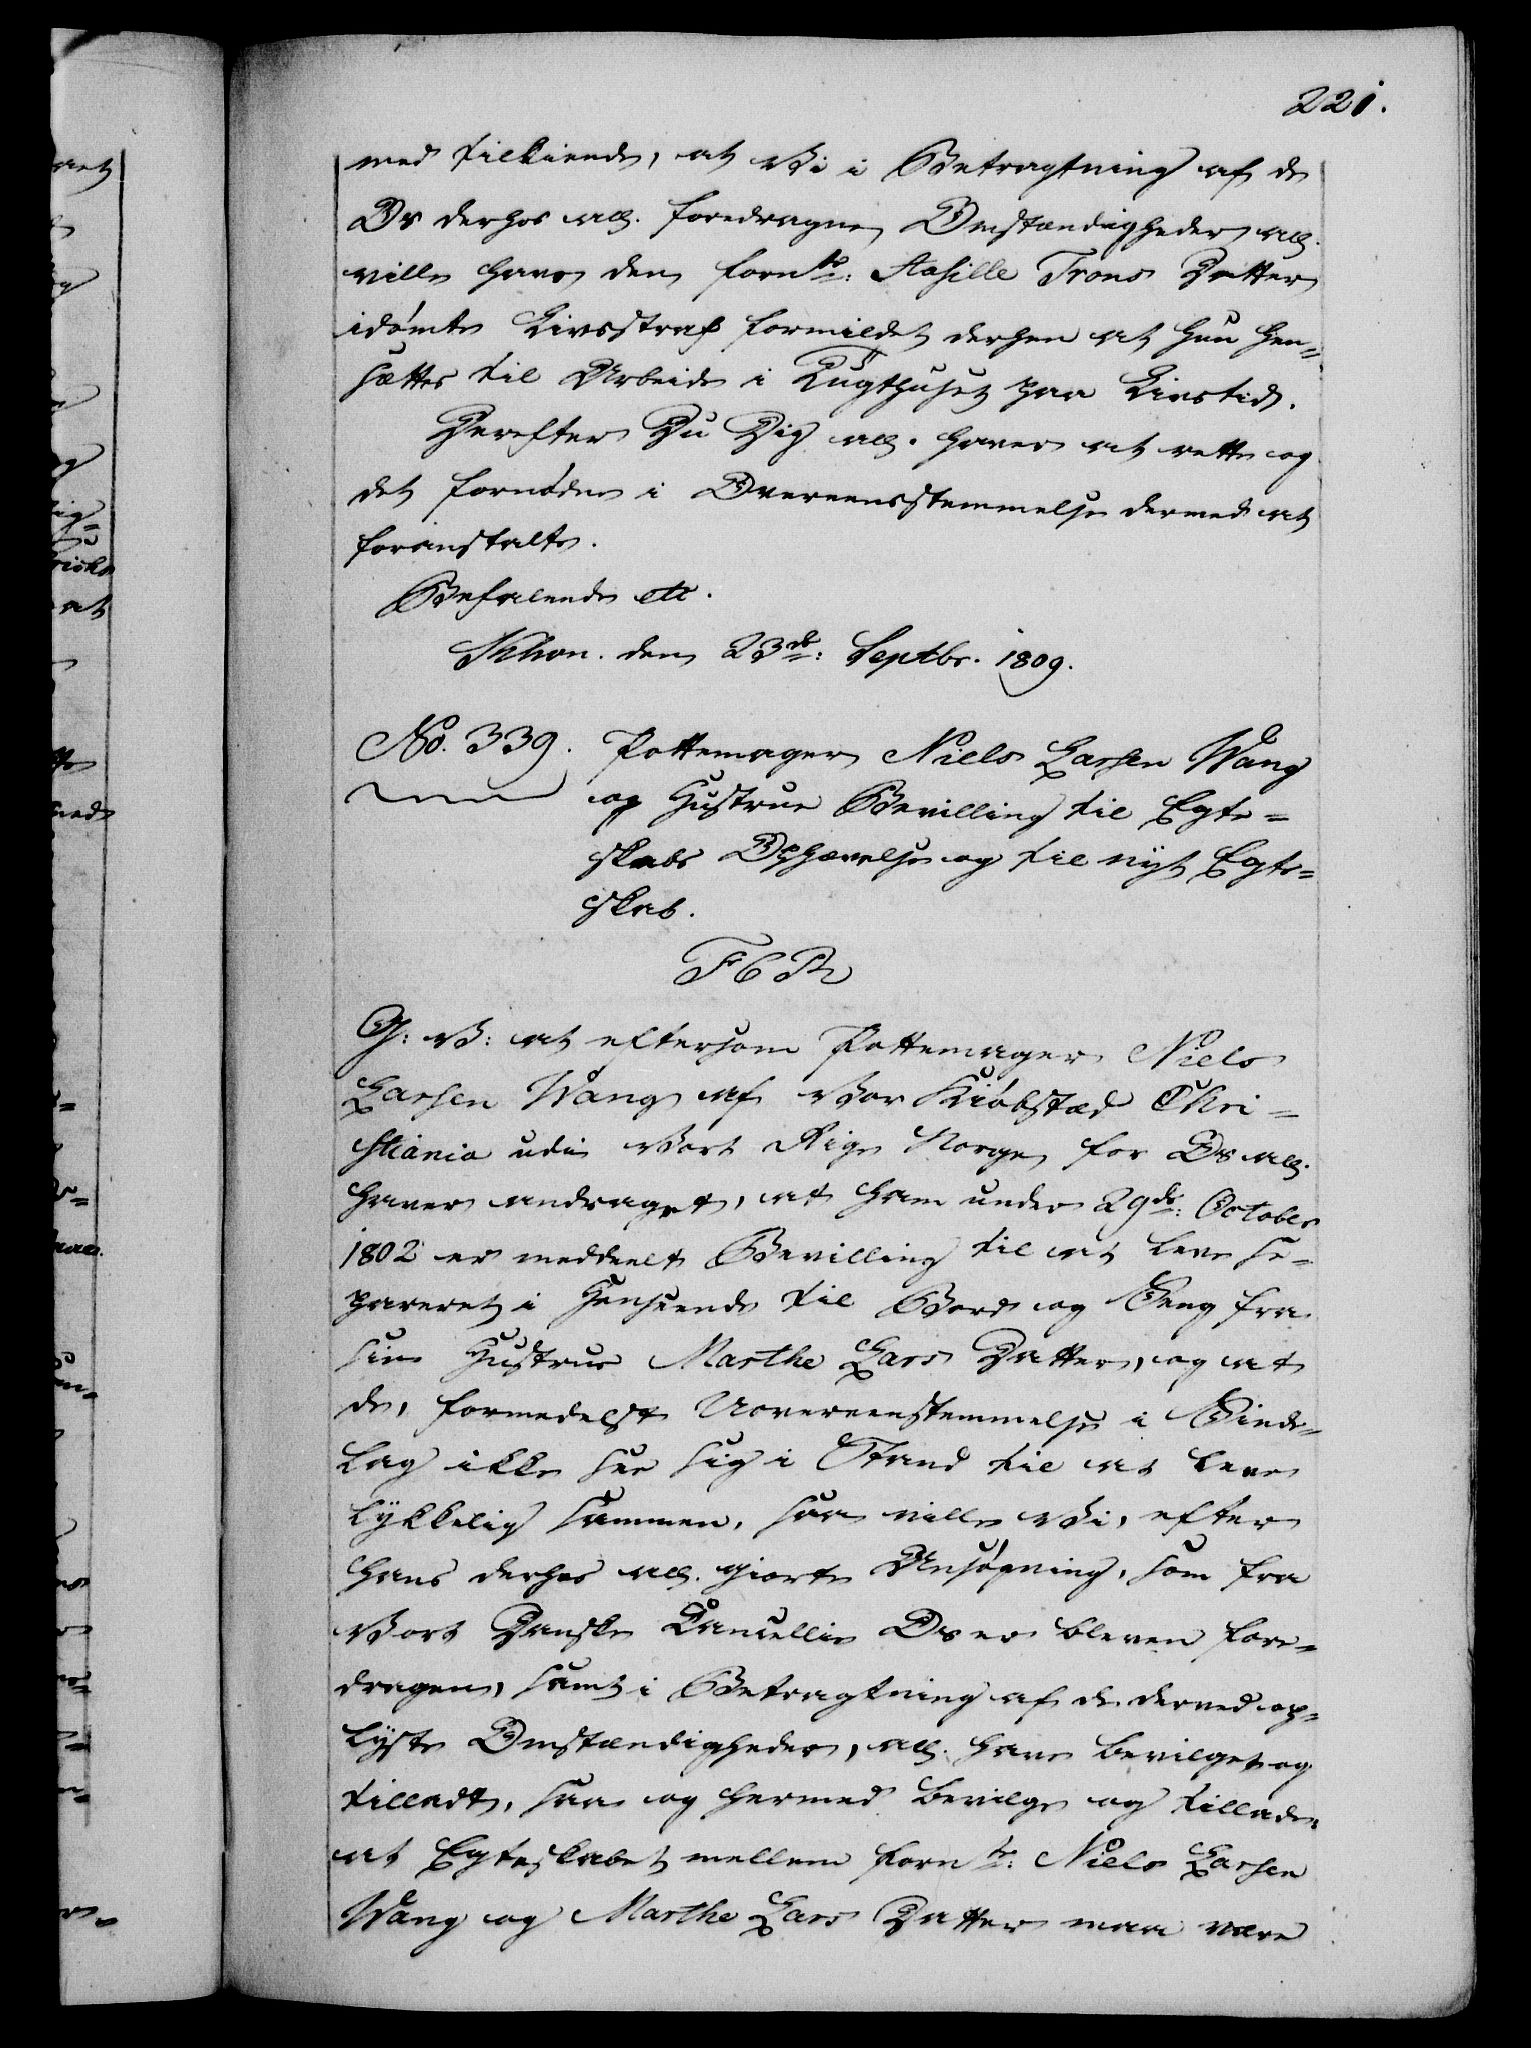 221.
med tilkiende, at Vi i Betragtning af de
Os derhos all. foredragne Omstændigheder all.
ville have den fornte: Aasille Trons Datter
idømte Livsstraf formildet derhen at hun hen-
sættes til Arbeide i Tugthuset paa Livstid.
Derefter Du Dig all. haver at rette og
det fornødne i Overeensstemmelse dermed at
foranstalte.
Befalende etc.
Khvn. den 23de: Septbr. 1809.
No. 339. Pottemager Niels Larsen Wang
og Hustrue Bevilling til Egte-
skabs Ophævelse og til nyt Egte-
skab.
F6R
G: V: at eftersom Pottemager Niels
Larsen Wang af Vor Kiøbstæd Chri-
stiania udi Vort Rige Norge for Os all.
haver andraget, at ham under 29de: October
1802 er meddeelt Bevilling til at leve se-
pareret i Henseende til Bord og Seng fra
sin Hustrue Marthe Lars Datter, og at
de, formedelst Uovereenstemmelse i Sinde-
lag ikke see sig i Stand til at leve
lykkelig sammen, saa ville Vi, efter
hans derhos all. giorte Ansøgning, som fra
Vort Danske Cancellie Os er bleven fore-
dragen, samt i Betragtning af de derved op-
lyste Omstændigheder, all. have bevilget og
tilladt, saa og hermed bevilge og tillade
at Egteskabet mellem fornte: Niels Larsen
Wang og Marthe Lars Datter maa være